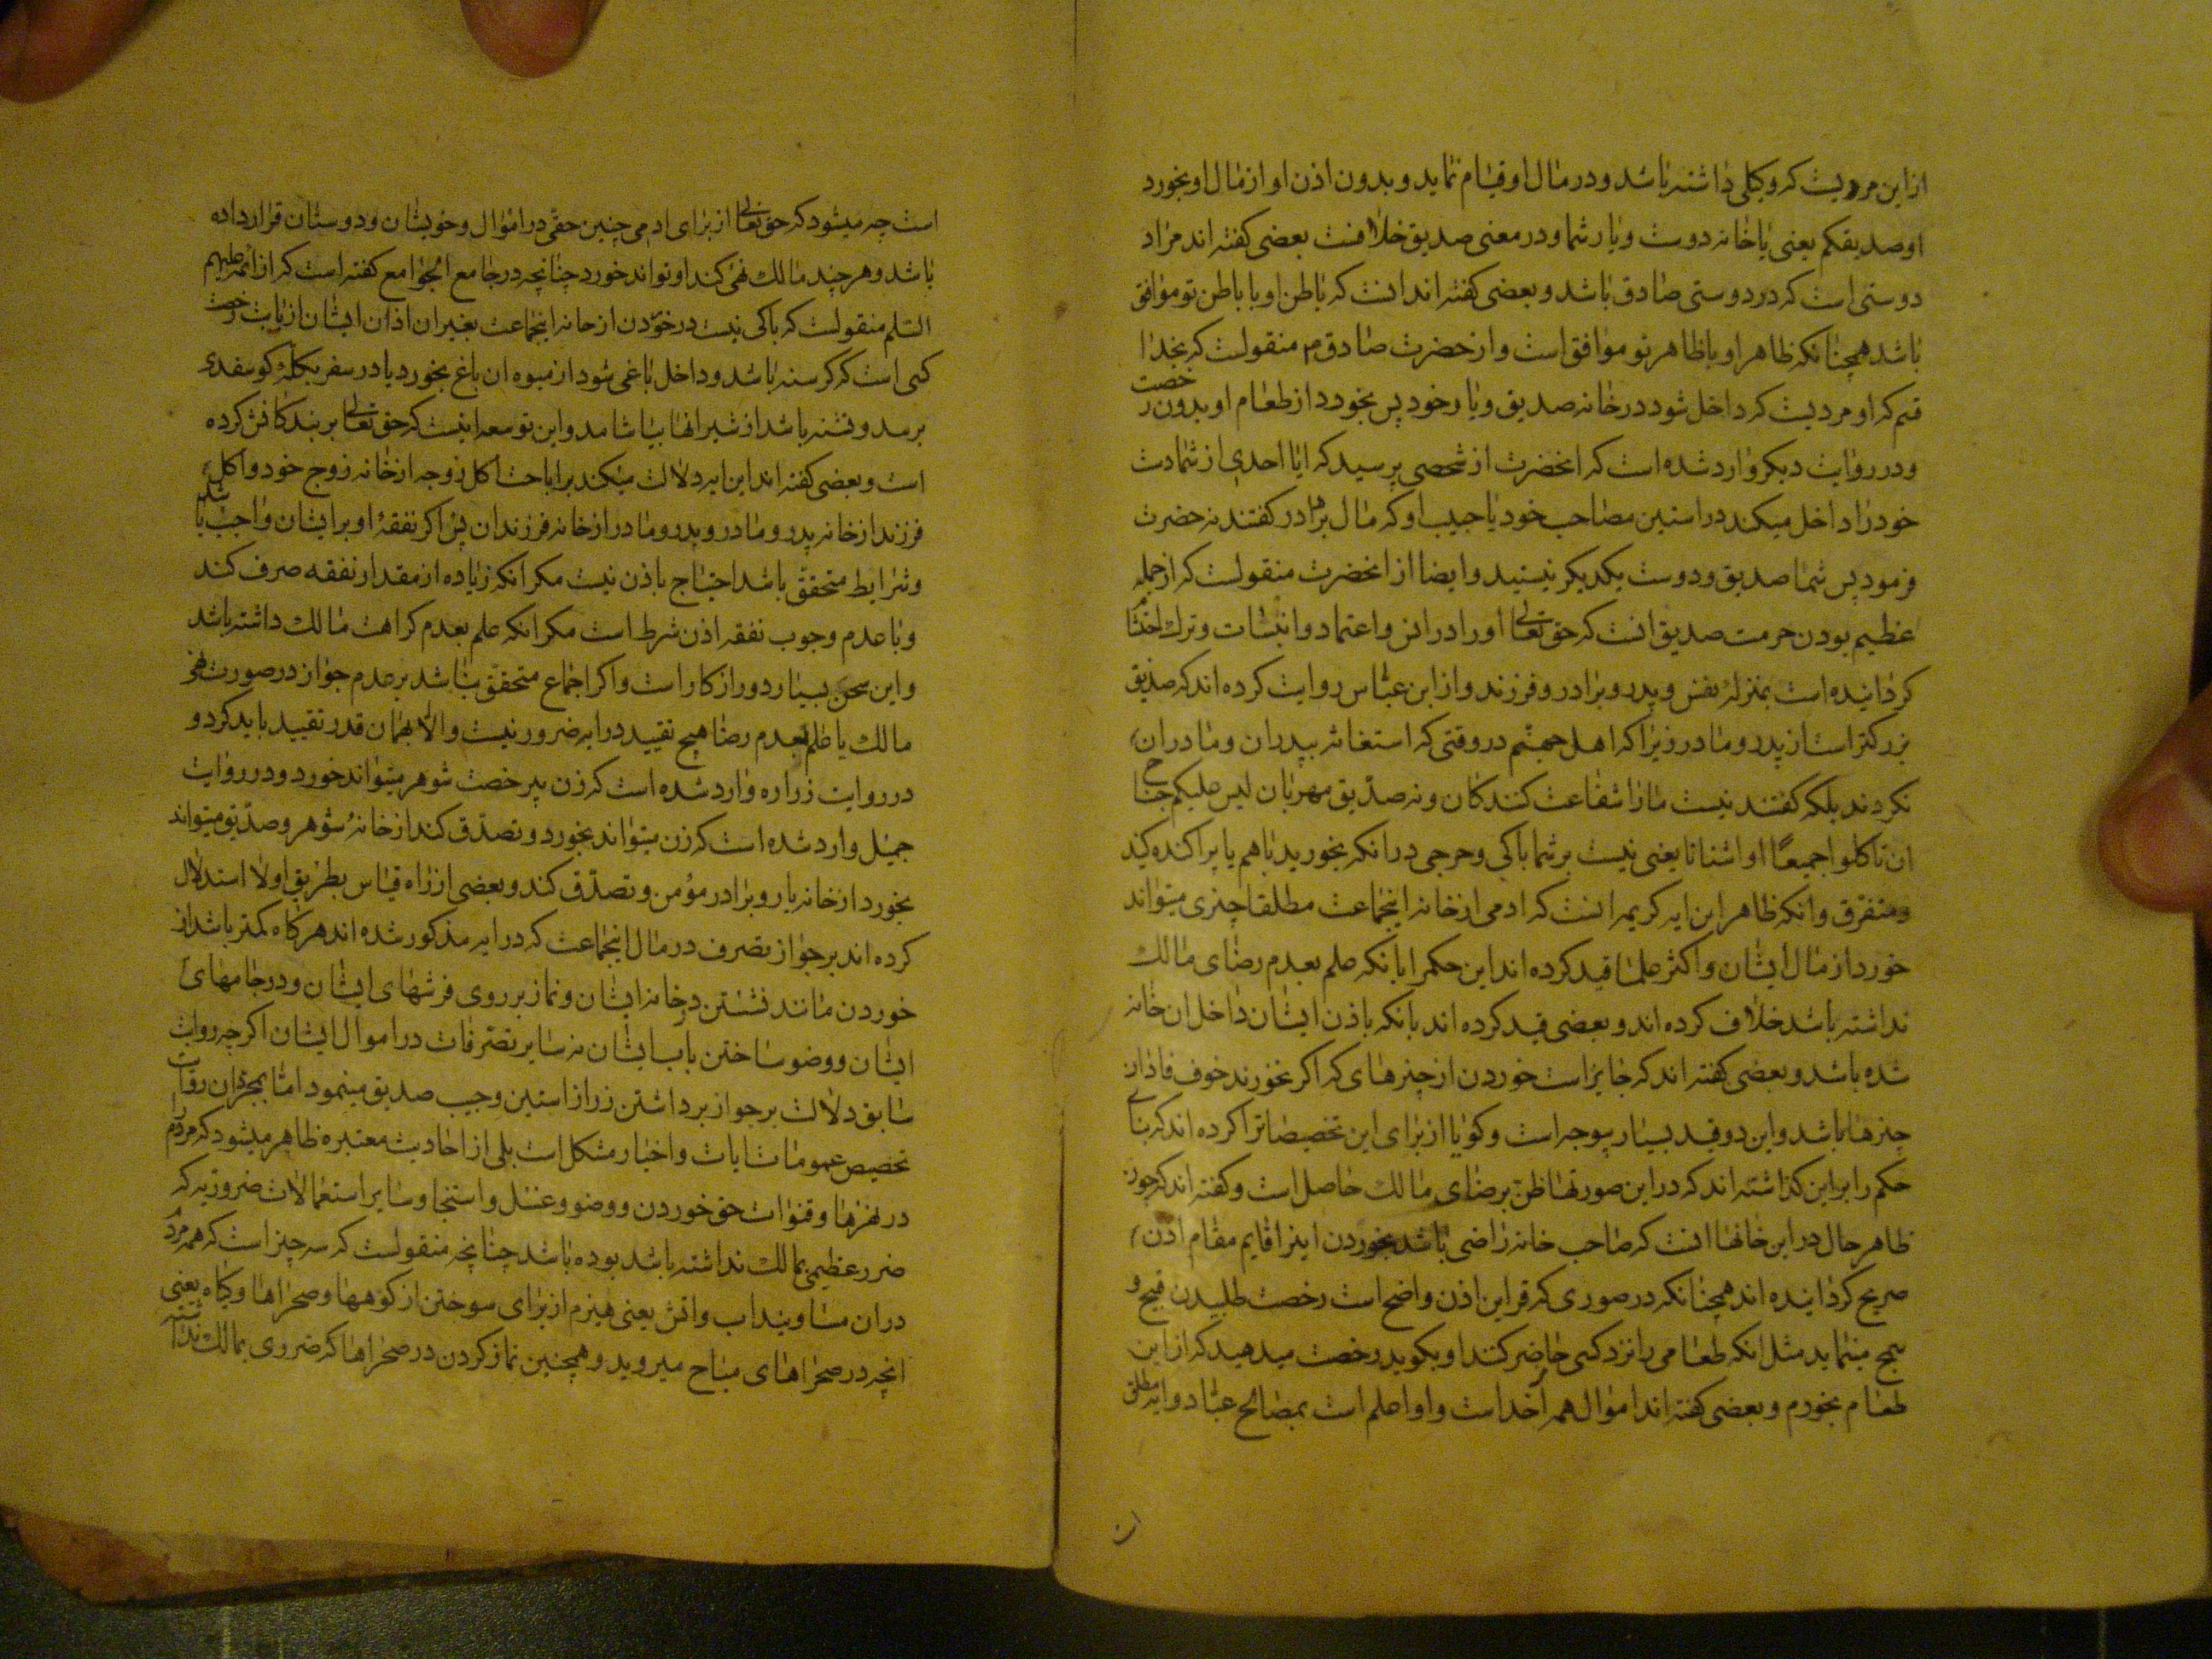 از این مردیست که وکیلی داشته باشد و در مال او قیام نماید و بدون اذن او از مال او بخورد
او صدیقکم یعنی یا خانه دوست و یار شما و در معنی صدیق خلافست بعضی کفته اند مراد
دوستی است که در دوستی صادق باشد و بعضی کفته اند انست که باطن او با باطن تو موافق
باشد همچنانکه ظاهر او با ظاهر تو موافق است و از حضرت صادق م منقولست که بخدا
قسم که او مردیست که داخل شود در خانه صدیق و یار خود پس بخورد از طعام او بدون رخصت
و در روایت دیکر وارد شده است که انحضرت از شخصی پرسید که ایا احدی از شما دست
خود را داخل میکند در استین مصاحب خود یا جیب او که مال بردارد کفتند نه حضرت
فرمود پس شما صدیق و دوست یکدیکر نیستید و ایضا از انحضرت منقولست که از جمله
عظیم بودن حرمت صدیق انست که حق تعالی او را در انس و اعتماد و انبساط و ترك احتشام
کردانیده است بمنزلهٔ نفس و پدر و برادر و فرزند و از ابن عباس روایت کرده اند که صدیق
بزرکتر است از پدر و مادر زیرا که اهل جهنم در وقتی که استغاثه بپدران و مادران
نکردند بلکه کفتند نیست ما را شفاعت کنندکان و نه صدیق مهربان لیس علیکم جناح
ان تاکلوا جمیعًا او اشتاتا یعنی نیست بر شما باکی و حرجی در انکه بخورید با هم یا پراکنده کید
و متفرق و انکه ظاهر این ایه کریمه انست که ادمی از خانه اینجماعت مطلقا چیزی میتواند
خورد از مال ایشان و اکثر علما قید کرده اند این حکم را بانکه علم بعدم رضای مالك
نداشته باشد خلاف کرده اند و بعضی قید کرده اند بانکه باذن ایشان داخل ان خانه
شده باشد و بعضی کفته اند که جایز است خوردن از چیزهای که اکر نخورند خوف فاد ان
چیزها باشد و این دو قید بسیار بیوجه است و کویا از برای این تخصیصات را کرده اند که بنای
حکم را بر این کذاشته اند که در این صورتها ظن برضای مالك حاصل است و کفته اند که چون
ظاهر حال در این خانها انست که صاحب خانه راضی باشد بخوردن اینرا قایم مقام اذن
صریح کردانیده اند همچنانکه در صوری که قراین اذن واضح است رخصت طلبیدن قبیح و
سمج مینماید مثل انکه طعامی را نزد کسی حاضر کند او بکوید رخصت میدهید که از این
طعام بخورم و بعضی کفته اند اموال همه از خداست و او اعلم است بمصالح عباد و ایه مطلق
است چه میشود که حق تعالی از برای ادمی چنین حقی در اموال و خویشان و دوستان قرار داده
باشد و هر چند مالك نهی کند او تواند خورد چنانچه در جامع الجوامع کفته است که از ائمه علیهم
السلم منقولست که باکی نیست در خوردن از خانه اینجماعت بغیر ان اذن ایشان از بابت رخصت
کسی است که کرسنه باشد و داخل باغی شود از میوه ان باغ بخورد یا در سفر بکله کوسفدی
برسد و تشنه باشد از شیر انها بیاشامد و این توسعه ایست که حق تعالی بر بندکانش کرده
است و بعضی کفته اند این ایه دلالت میکند بر اباحت اکل زوجه از خانه زوج خود و اکل
فرزند از خانه پدر و مادر و پدر و مادر از خانه فرزندان پس اکر نفقهٔ او بر ایشان واجب باشد
و شرایط متحقق باشد احتیاج باذن نیست مکر انکه زیاده از مقدار نفقه صرف کند
و با عدم وجوب نفقه اذن شرط است مکر انکه علم بعدم کراهت مالك داشته باشد
و این سخن بسیار دور از کار است و اکر اجماع متحقق نباشد بر عدم جواز در صورت نهی
مالك یا علم بعدم رضا هیچ تقیید در ایه ضرور نیست و الا بهمان قدر تقیید باید کرد و
در روایت زراره وارد شده است که زن بی رخصت شوهر میتواند خورد و در روایت
جمیل وارد شده است که زن میتواند بخورد و تصدق کند از خانهٔ شوهر و صدیق میتواند
بخورد از خانه یار و برادر مؤمن و تصدق کند و بعضی از راه قیاس بطریق اولا استدلال
کرده اند بر جواز تصرف در مال اینجماعت که در ایه مذکور شده اند هرکاه کمتر باشد از
خوردن مانند نشستن در خانه ایشان و نماز بر روی فرشهای ایشان و در جامهای
ایشان و وضو ساختن باب ایشان نه سایر تصرفات در اموال ایشان اکر چه روایت
سابق دلالت بر جواز برداشتن زر از استین و جیب صدیق مینمود اما بمجرد ان روایت
تخصیص عمومات ایات و اخبار مشکل است بلی از احادیث معتبره ظاهر میشود که مردم را
در نهرها و قنوات حق خوردن و وضو و غسل و استنجا و سایر استعمالات ضروریه که
ضرر عظیمی بمالك نداشته باشد بوده باشد چنانچه منقولست که سه چیز است که همه مردم
در ان مساویند اب و اتش یعنی هیزم از برای سوختن از کوهها و صحراها و کیاه یعنی
انچه در صحراهای مباح میروید و همچنین نماز کردن در صحراها که ضرری بمالك نداشته